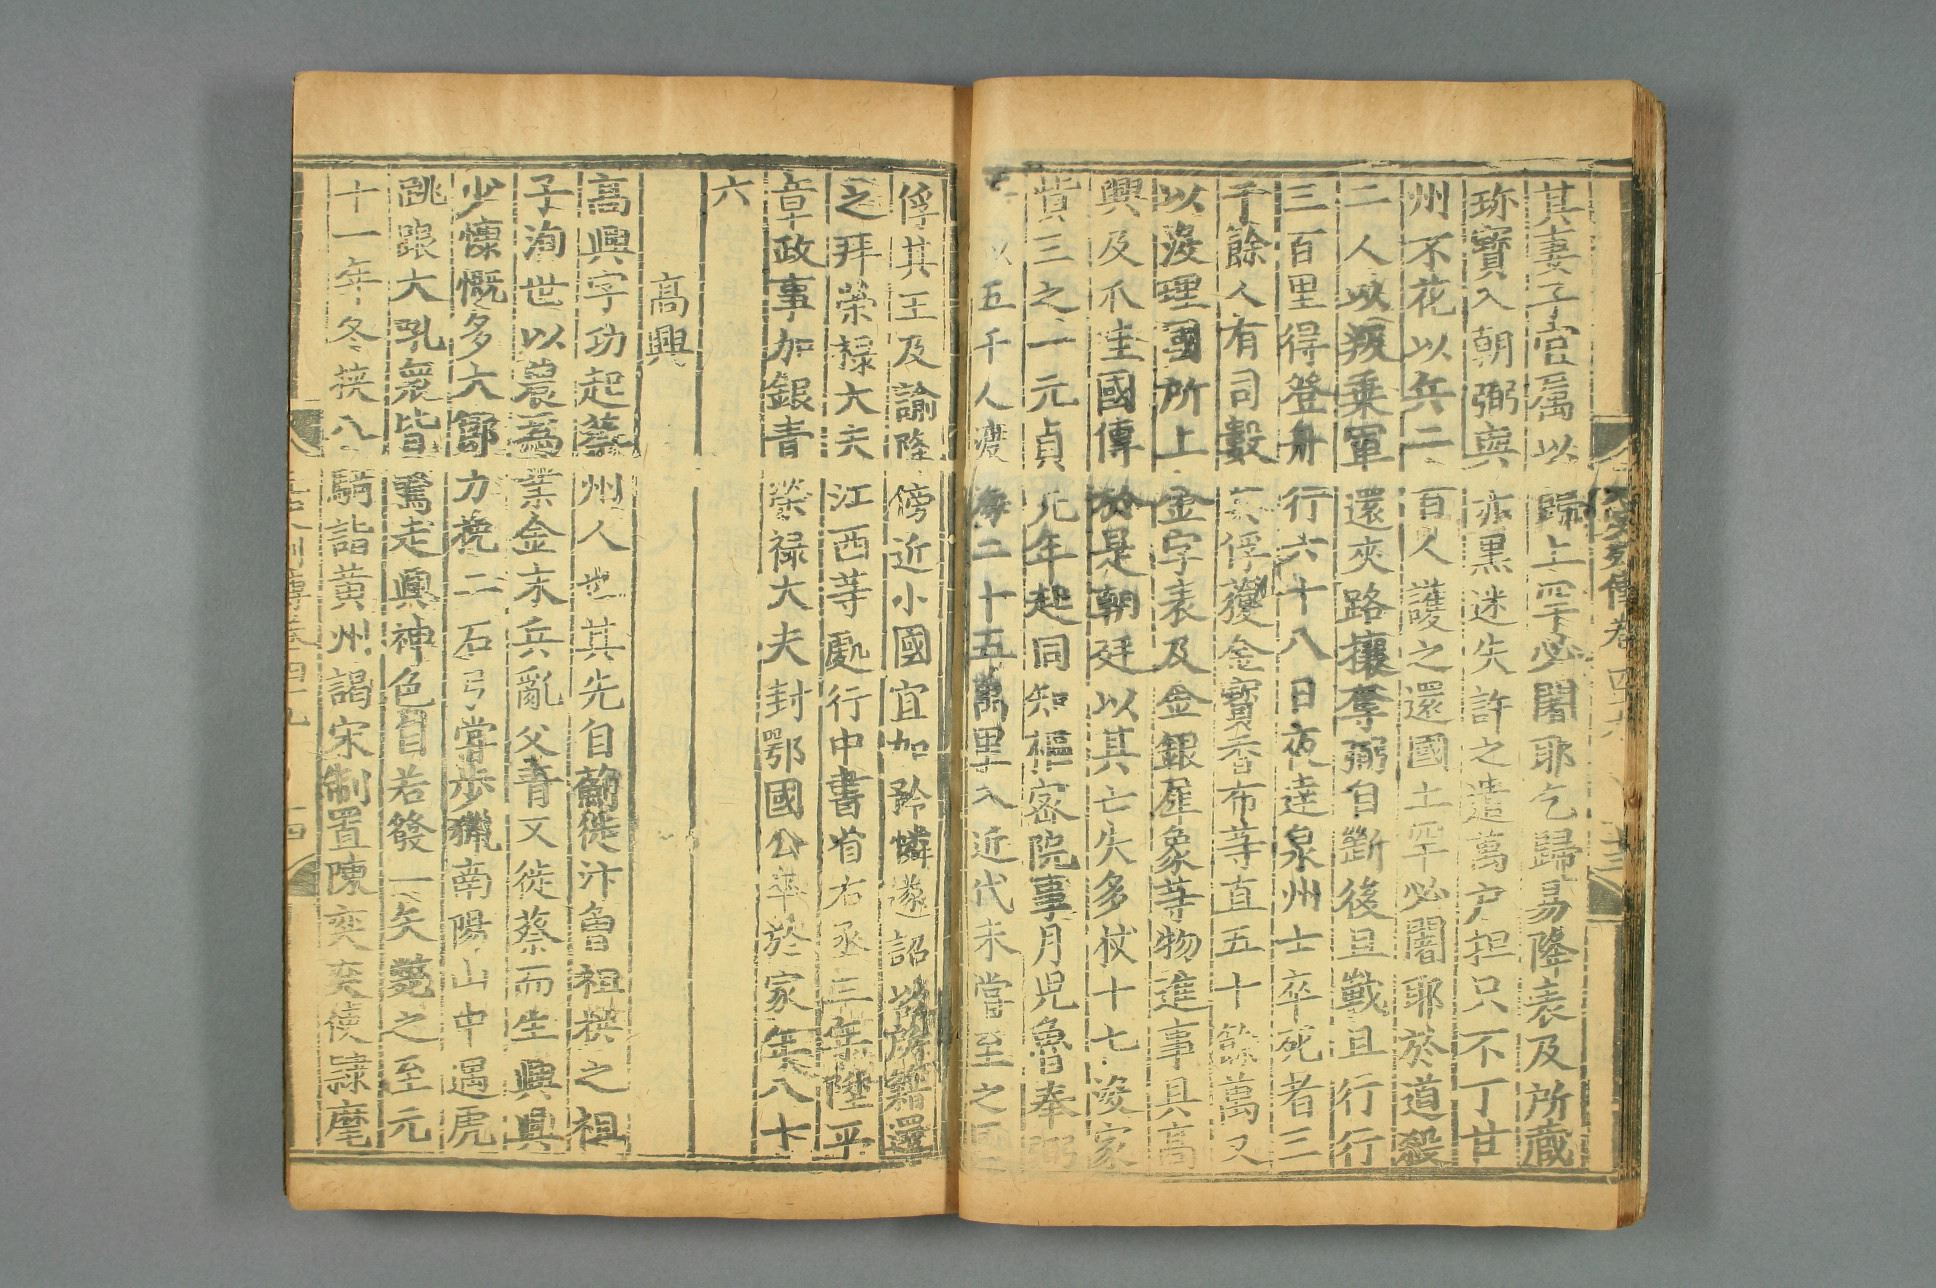 其妻子官属以歸上罕必闍耶乞歸易降表及所藏
珎寶入朝弼與亦黒迷失許之遣萬户担只不丁甘
州不花以兵二百人護之還國土罕必闍耶於道殺
二人以叛乗軍還夾路攘奪弼自斷後且戰且行行
三百里得登舟行六十八日夜達泉州士卒死者三
千餘人有司數其俘獲金寶香布等直五十餘萬又
以沒理國所上金字表及金銀犀象等物進事具高
興及爪哇國傳於是朝廷以其亡失多杖十七没家
貲三之一元貞元年起同知樞密院事月兒魯奉弼
以五千人渡海二十五萬里入近代未嘗至之國
俘其王及諭降傍近小國宜加矜憐遂詔以所籍還
之拜榮禄大夫江西等處行中書省右丞三年陞平
章政事加銀青榮禄大夫封鄂國公卒於家年八十
六
高興
高興字功起蔡州人世其先自薊徙汴魯祖拱之祖
子洵世以農爲業金末兵亂父青又徙蔡而生興興
少慷慨多大節力挽二石弓嘗歩獵南陽山中遇虎
跳踉大吼衆皆驚走興神色自若發一矢斃之至元
十一年冬挟八騎詣黄州謁宋制置陳奕奕使隷麾
史列傳卷四十九 十三
元史列傳卷四十九 十四